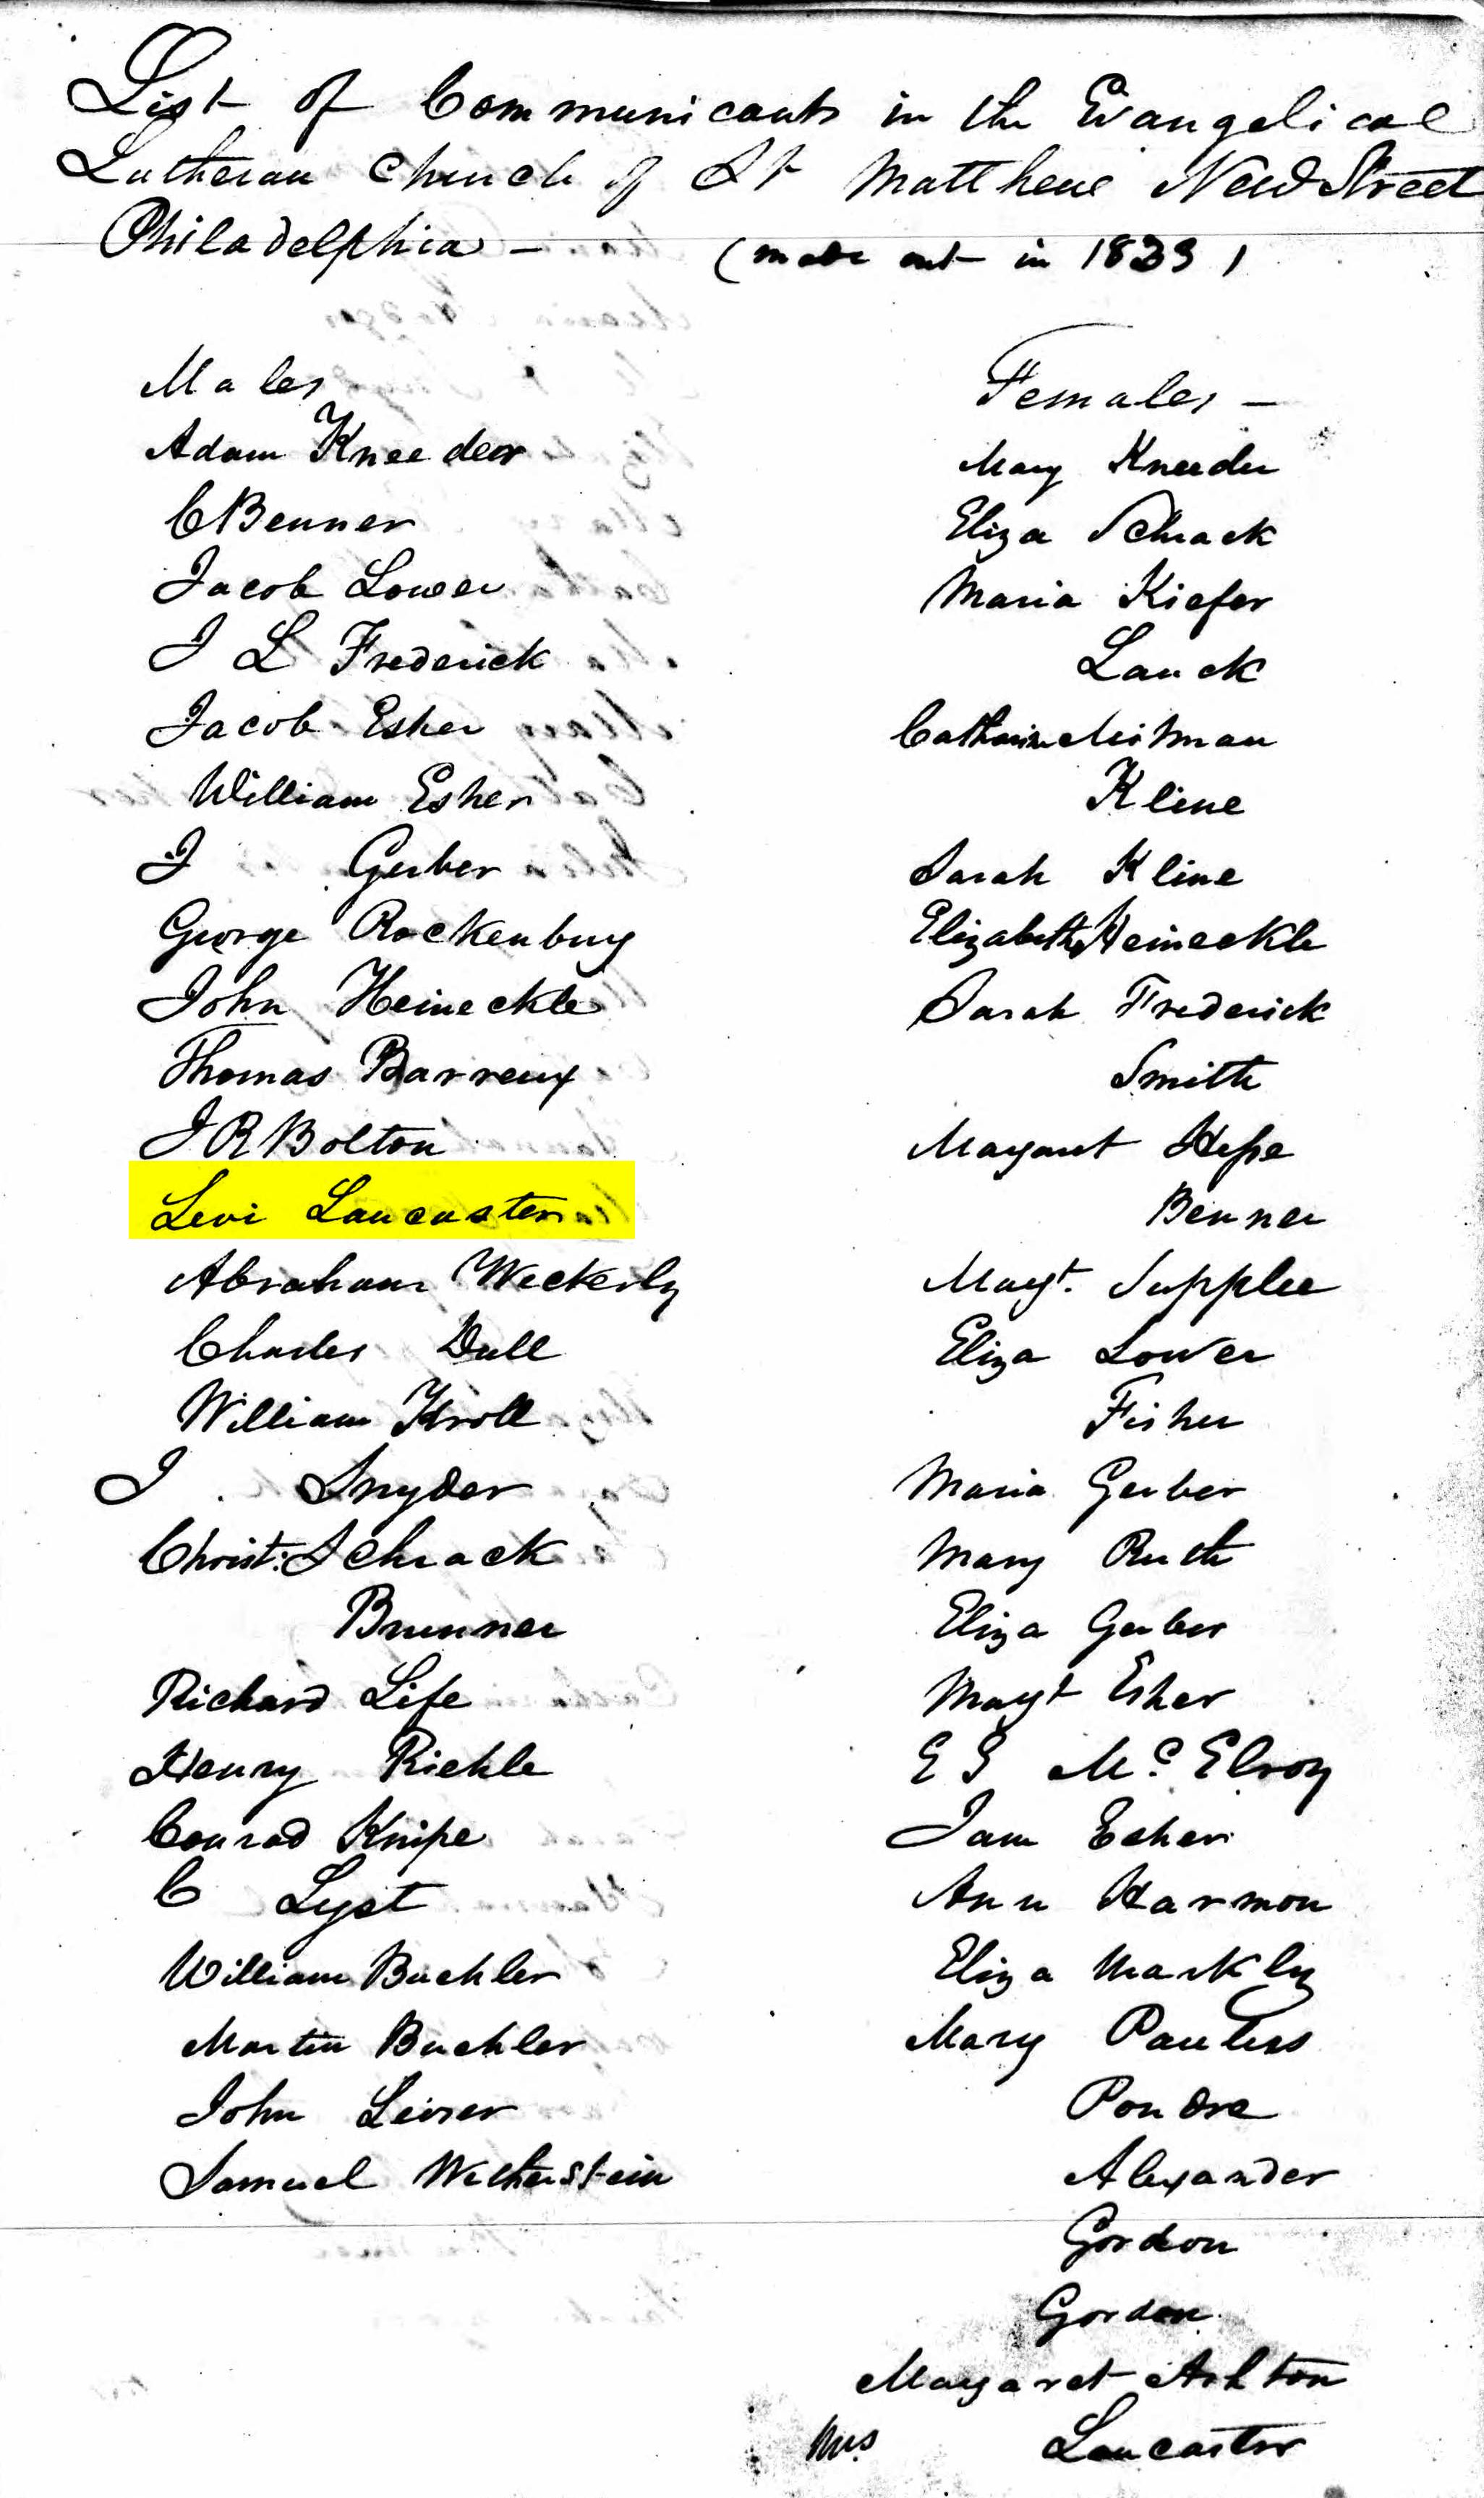 List of Communicants in the Evangelical
Lutheran Church of St Matthew New Street
Philadelphia -
(made out in 1839)
Males
Adam Kneeder
C Benner
Jacob Lower
J L Frederick
Jacob Esher
William Esher
J Gerber
George Rockenbury
John Heineckle
Thomas Barreux
J R Bolton
Levi Lancaster
Abraham Weckerly
Charles Dull
William Kroll
J Snyder
Christ: Schrack
Brunner
Richard Life
Henry Riehle
Conrad Knipe
C Lyst
William Buehler
Martin Buehler
John Leiser
Samuel
Females -
Mary Kneeder
Eliza Schrack
Maria Kiefer
Lauck
Catharine
Kline
Sarah Kline
Elizabeth Heineckle
Sarah Frederick
Smith
Margaret
Benner
Margt. Supplee
Eliza Lower
Fisher
Maria Gerber
Mary Ruth
Eliza Gerber
Margt Esher
E S McElroy
Jane Esher
Ann Harmon
Eliza Markly
Mary
Poudre
Alexander
Gordon
Gordon
Margaret Ashton
Mrs Lancaster